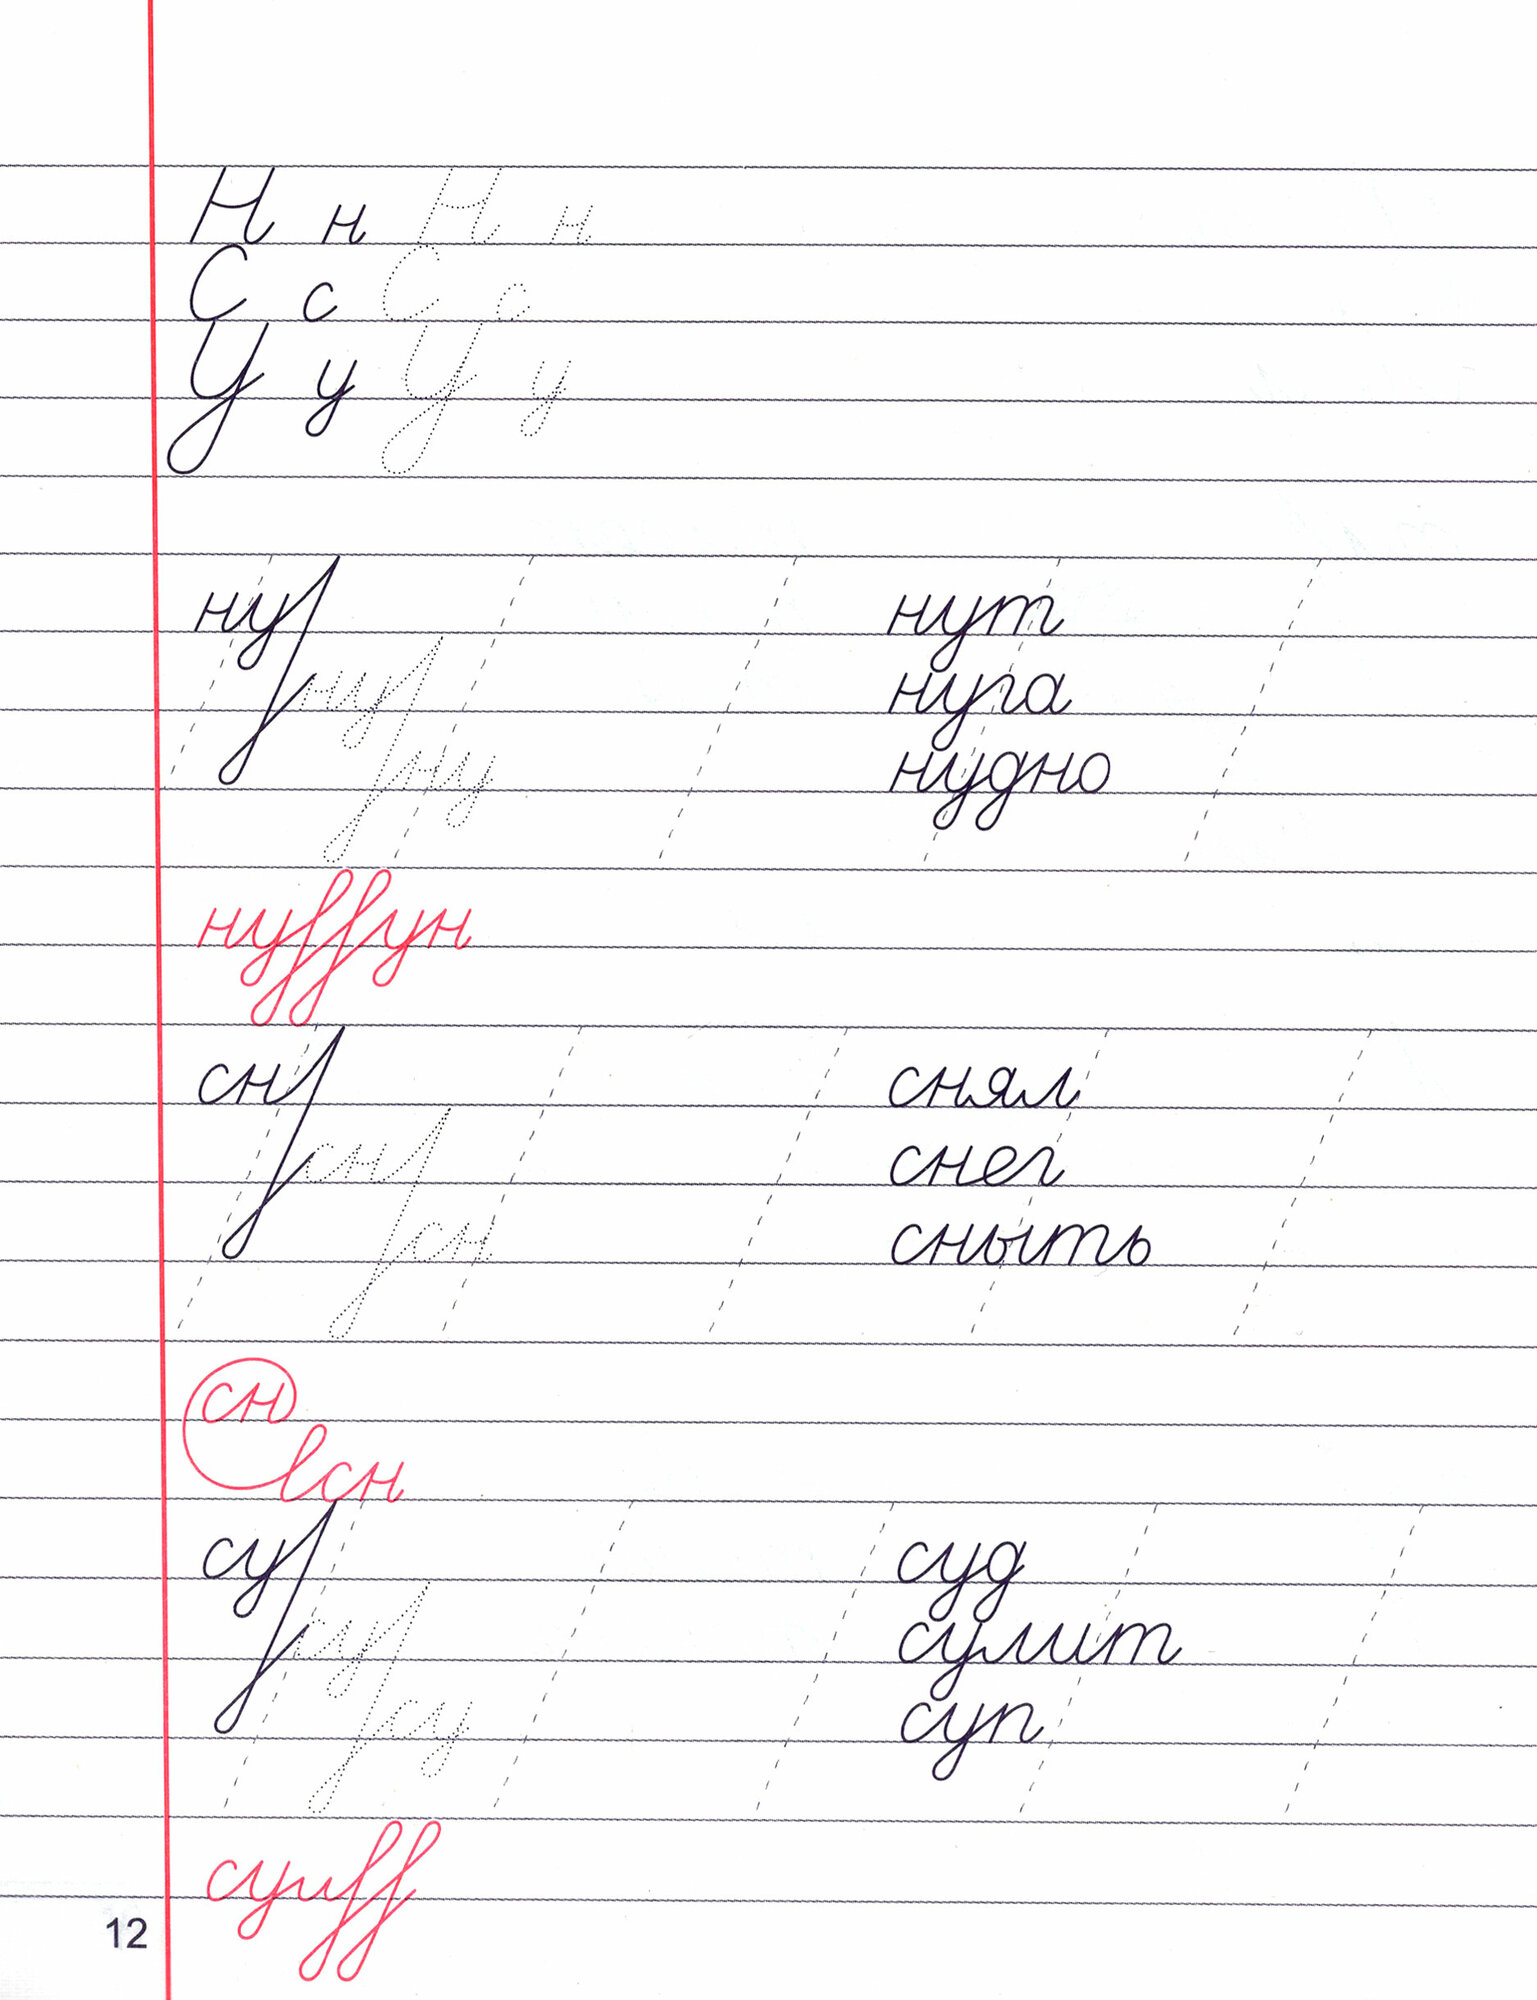 Н н Н н
С с С с
У у У у
ну нут
ну нуга
ну нудно
ну ун
сн снял
сн снег
сн сныть
сн
сн
су суд
су сулит
су суп
су
12